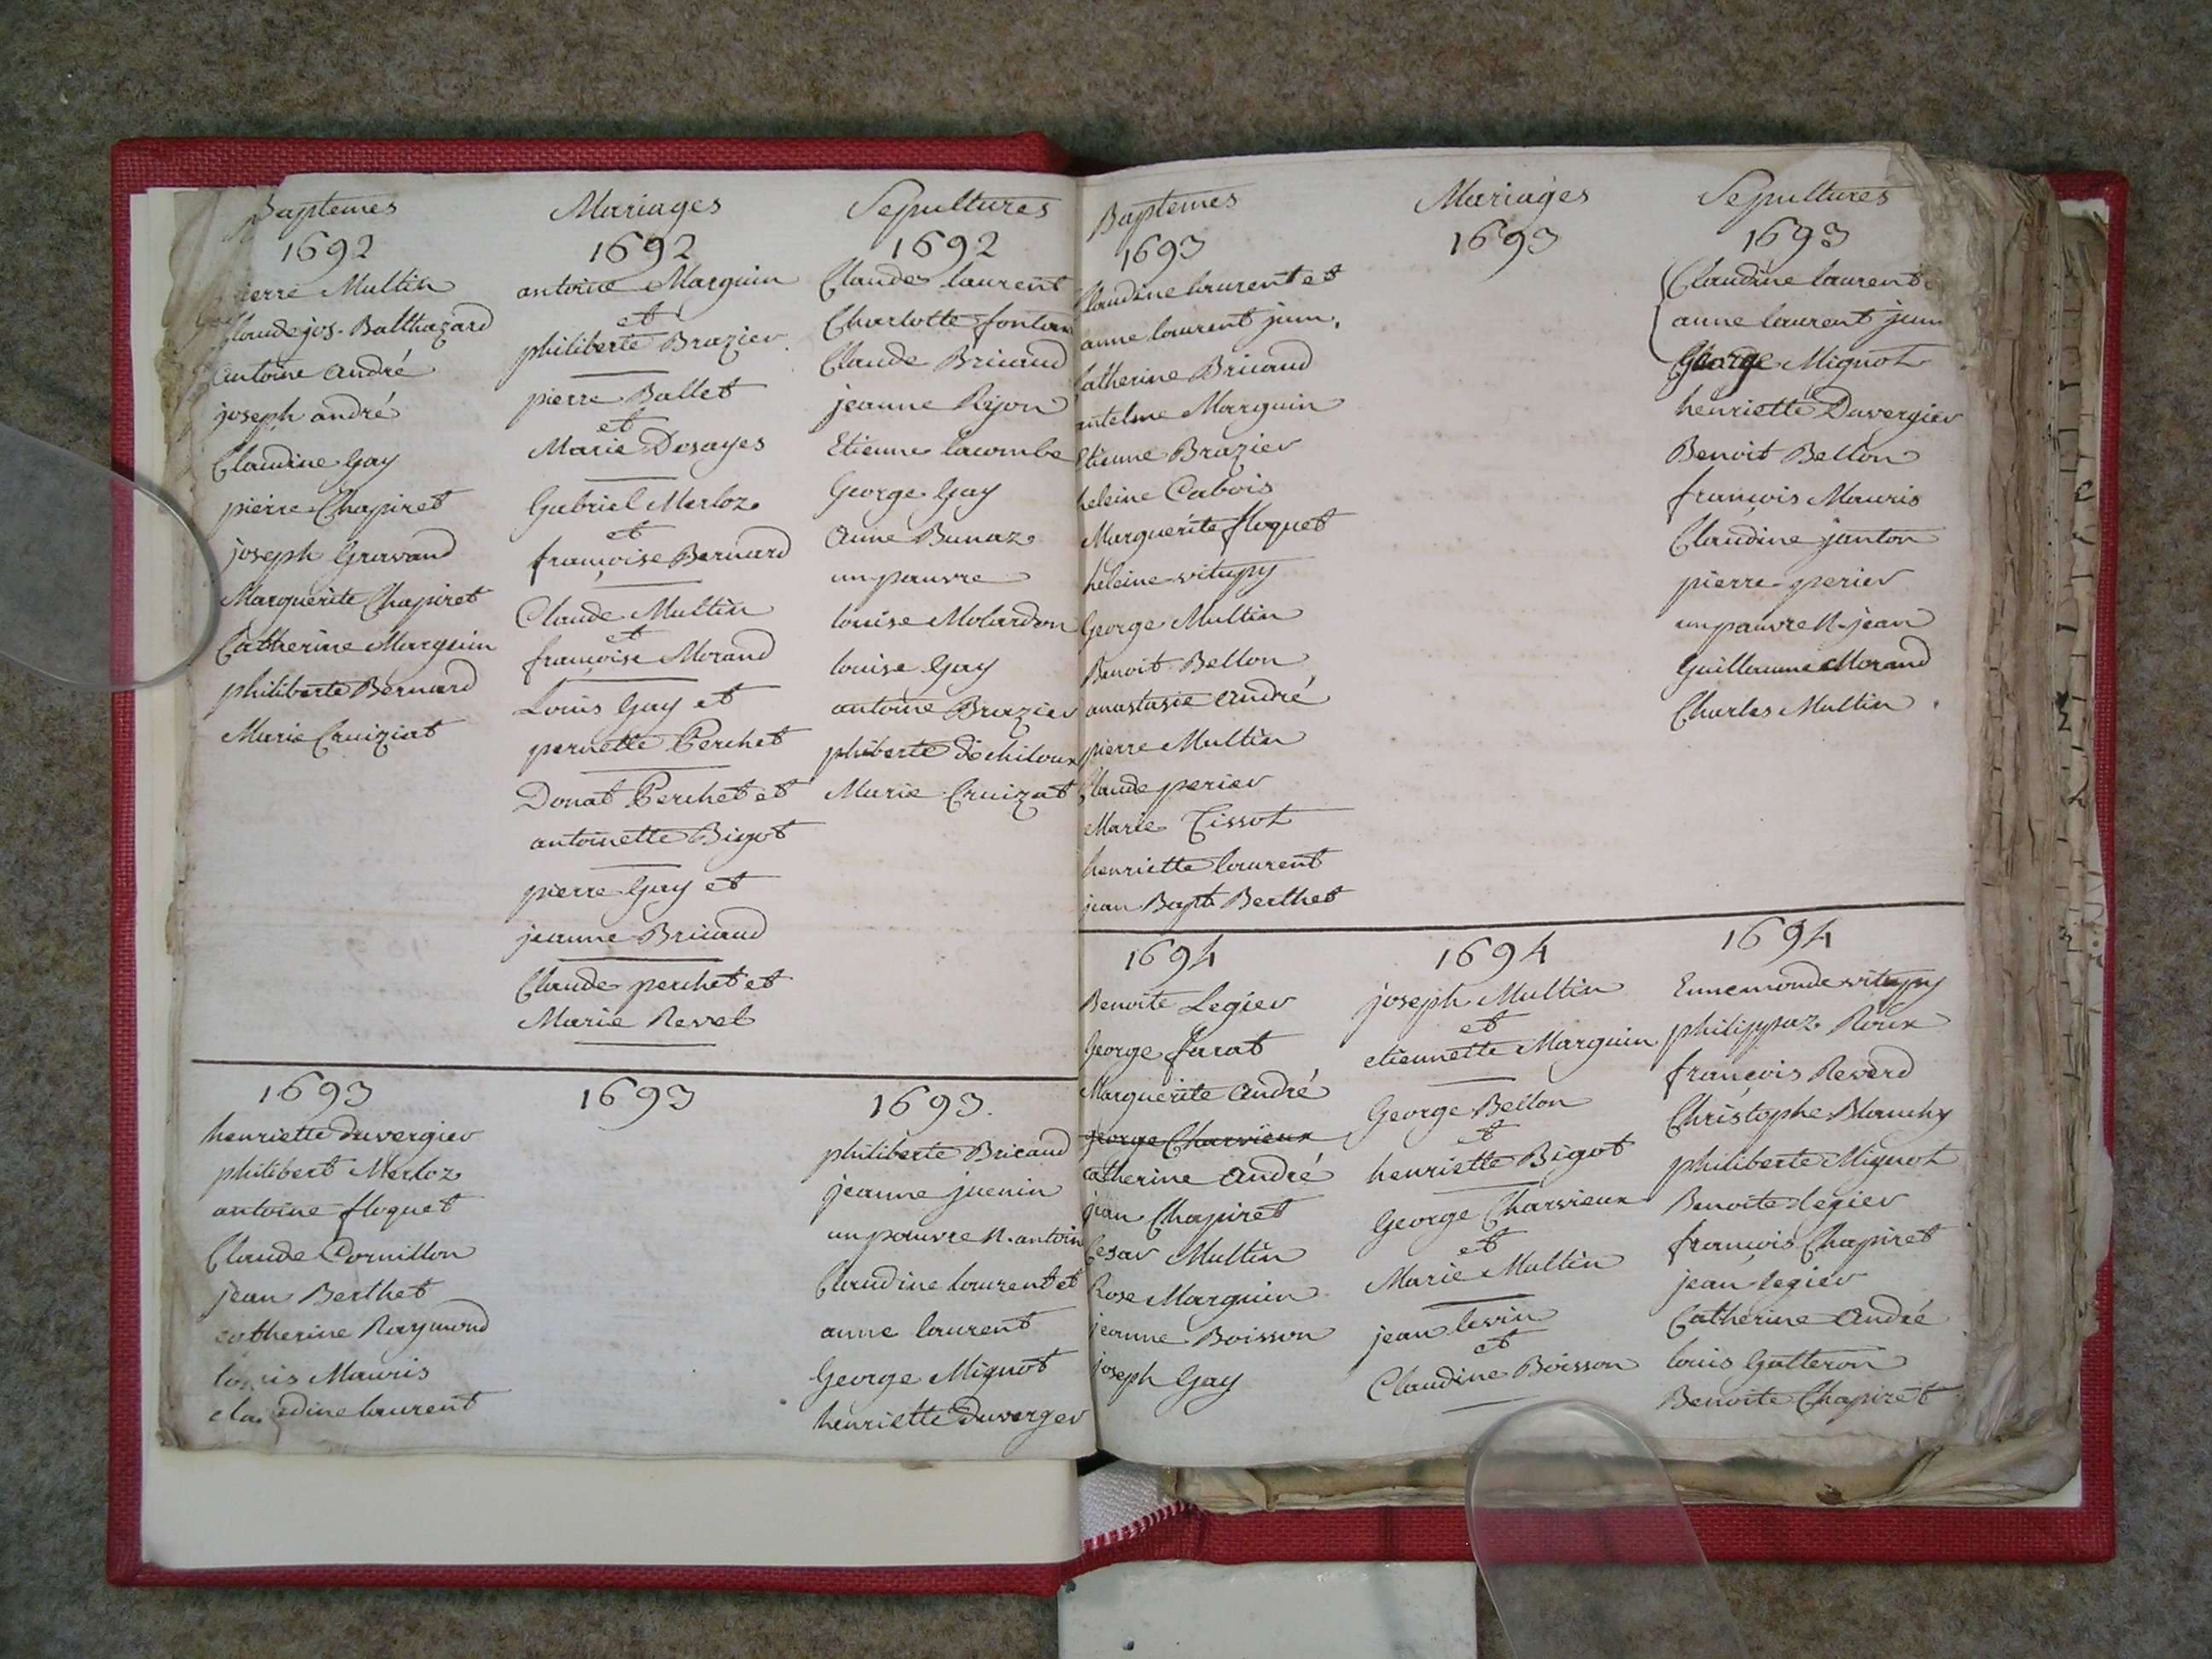 Baptemes
1692
pierre Multin
Claude jos. Balthazard
antoine andré
joseph andré
Claudine Gay
pierre Chapiret
joseph Gravand
Marguerite Chapiret
Catherine Marguin
philiberte Bernard
Marie Cruiziat
Mariages
1692
antoine Marguin
et
philiberte Brazier
pierre Ballet
et
Marie Desayes
Gabriel Merloz
et
françoise Bernard
Claude Multin
et
françoise Morand
Louis Gay et
pernette Perchet
Donat Perchet et
antoinette Bigot
pierre Gay et
jeanne Bricaud
Claude perchet et
Marie Revel
Sepultures
1692
Claude laurent
Charlotte fontan
Claude Bricaud
jeanne Rijon
Etienne lacombe
George Gay
Anne Bunaz
un pauvre
louise Molardon
louise Gay
antoine Brazier
phiberte dechiloux
Marie Cruizat
1693
henriette duvergier
philibert Merloz
antoine floquet
Claude Cornillon
jean Berthet
catherine Raymond
louis Mauris
claudine laurent
1693
1693.
philiberte Bricaud
jeanne juenin
un pauvre N. antoin
Claudine laurent et
anne laurent
George Mignot
henriette Duverger
Baptemes
1693
Claudine laurent et
anne laurent jum.
Catherine Bricaud
antelme Marguin
Etienne Brazier
heleine Cabois
Marguerite floquet
heleine vitupy
George Multin
Benoit Bellon
anastasie André
pierre Multin
Claude perier
Marie Tissot
henriette laurent
jean Bapt. Berthet
Mariages
1693
Sepultures
1693
Claudine laurent
anne laurent jum
George Mignot
henriette Duvergier
Benoit Bellon
françois Mauris
Claudine janton
pierre perier
un pauvre N. jean
Guillaume Morand
Charles Multin
1694
Benoite Legier
George farat
Marguerite André
george Charvieux
catherine André
jean Chapiret
Cesar Multin
Rose Marguin
jeanne Boisson
joseph Gay
1694
joseph Multin
et
etiennette Marguin
George Bellon
et
henriette Bigot
George Charvieux
et
Marie Multin
jean levin
et
Claudine Boisson
1694
Ennemonde vitupy
philippaz Roux
françois Reverd
Christophe Blanchy
philiberte Mignot
Benoite legier
françois Chapiret
jean legier
Catherine André
louis Galleron
Benoite Chapiret